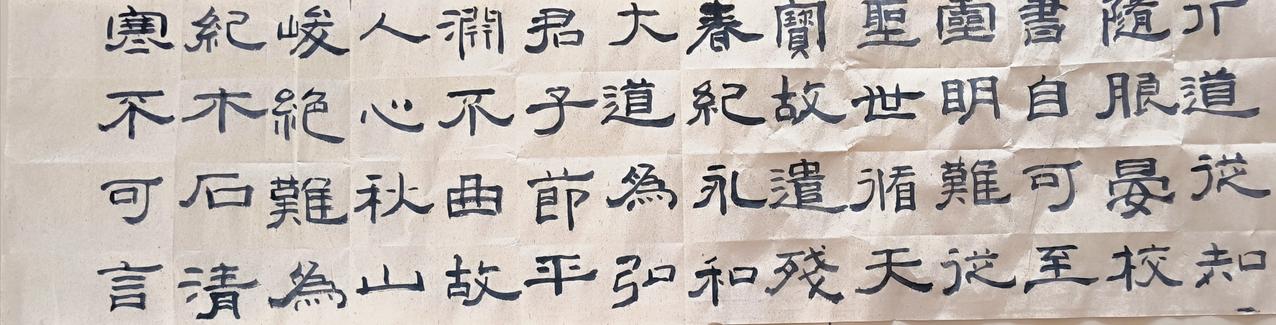 道從知
隨晏校
書自可至
靈明難從
聖世循天
寶故遣殘
春紀永和
大道為弘
君子節平
淵不曲故
人心秋山
峻絕難為
紀木石清
寒不可言